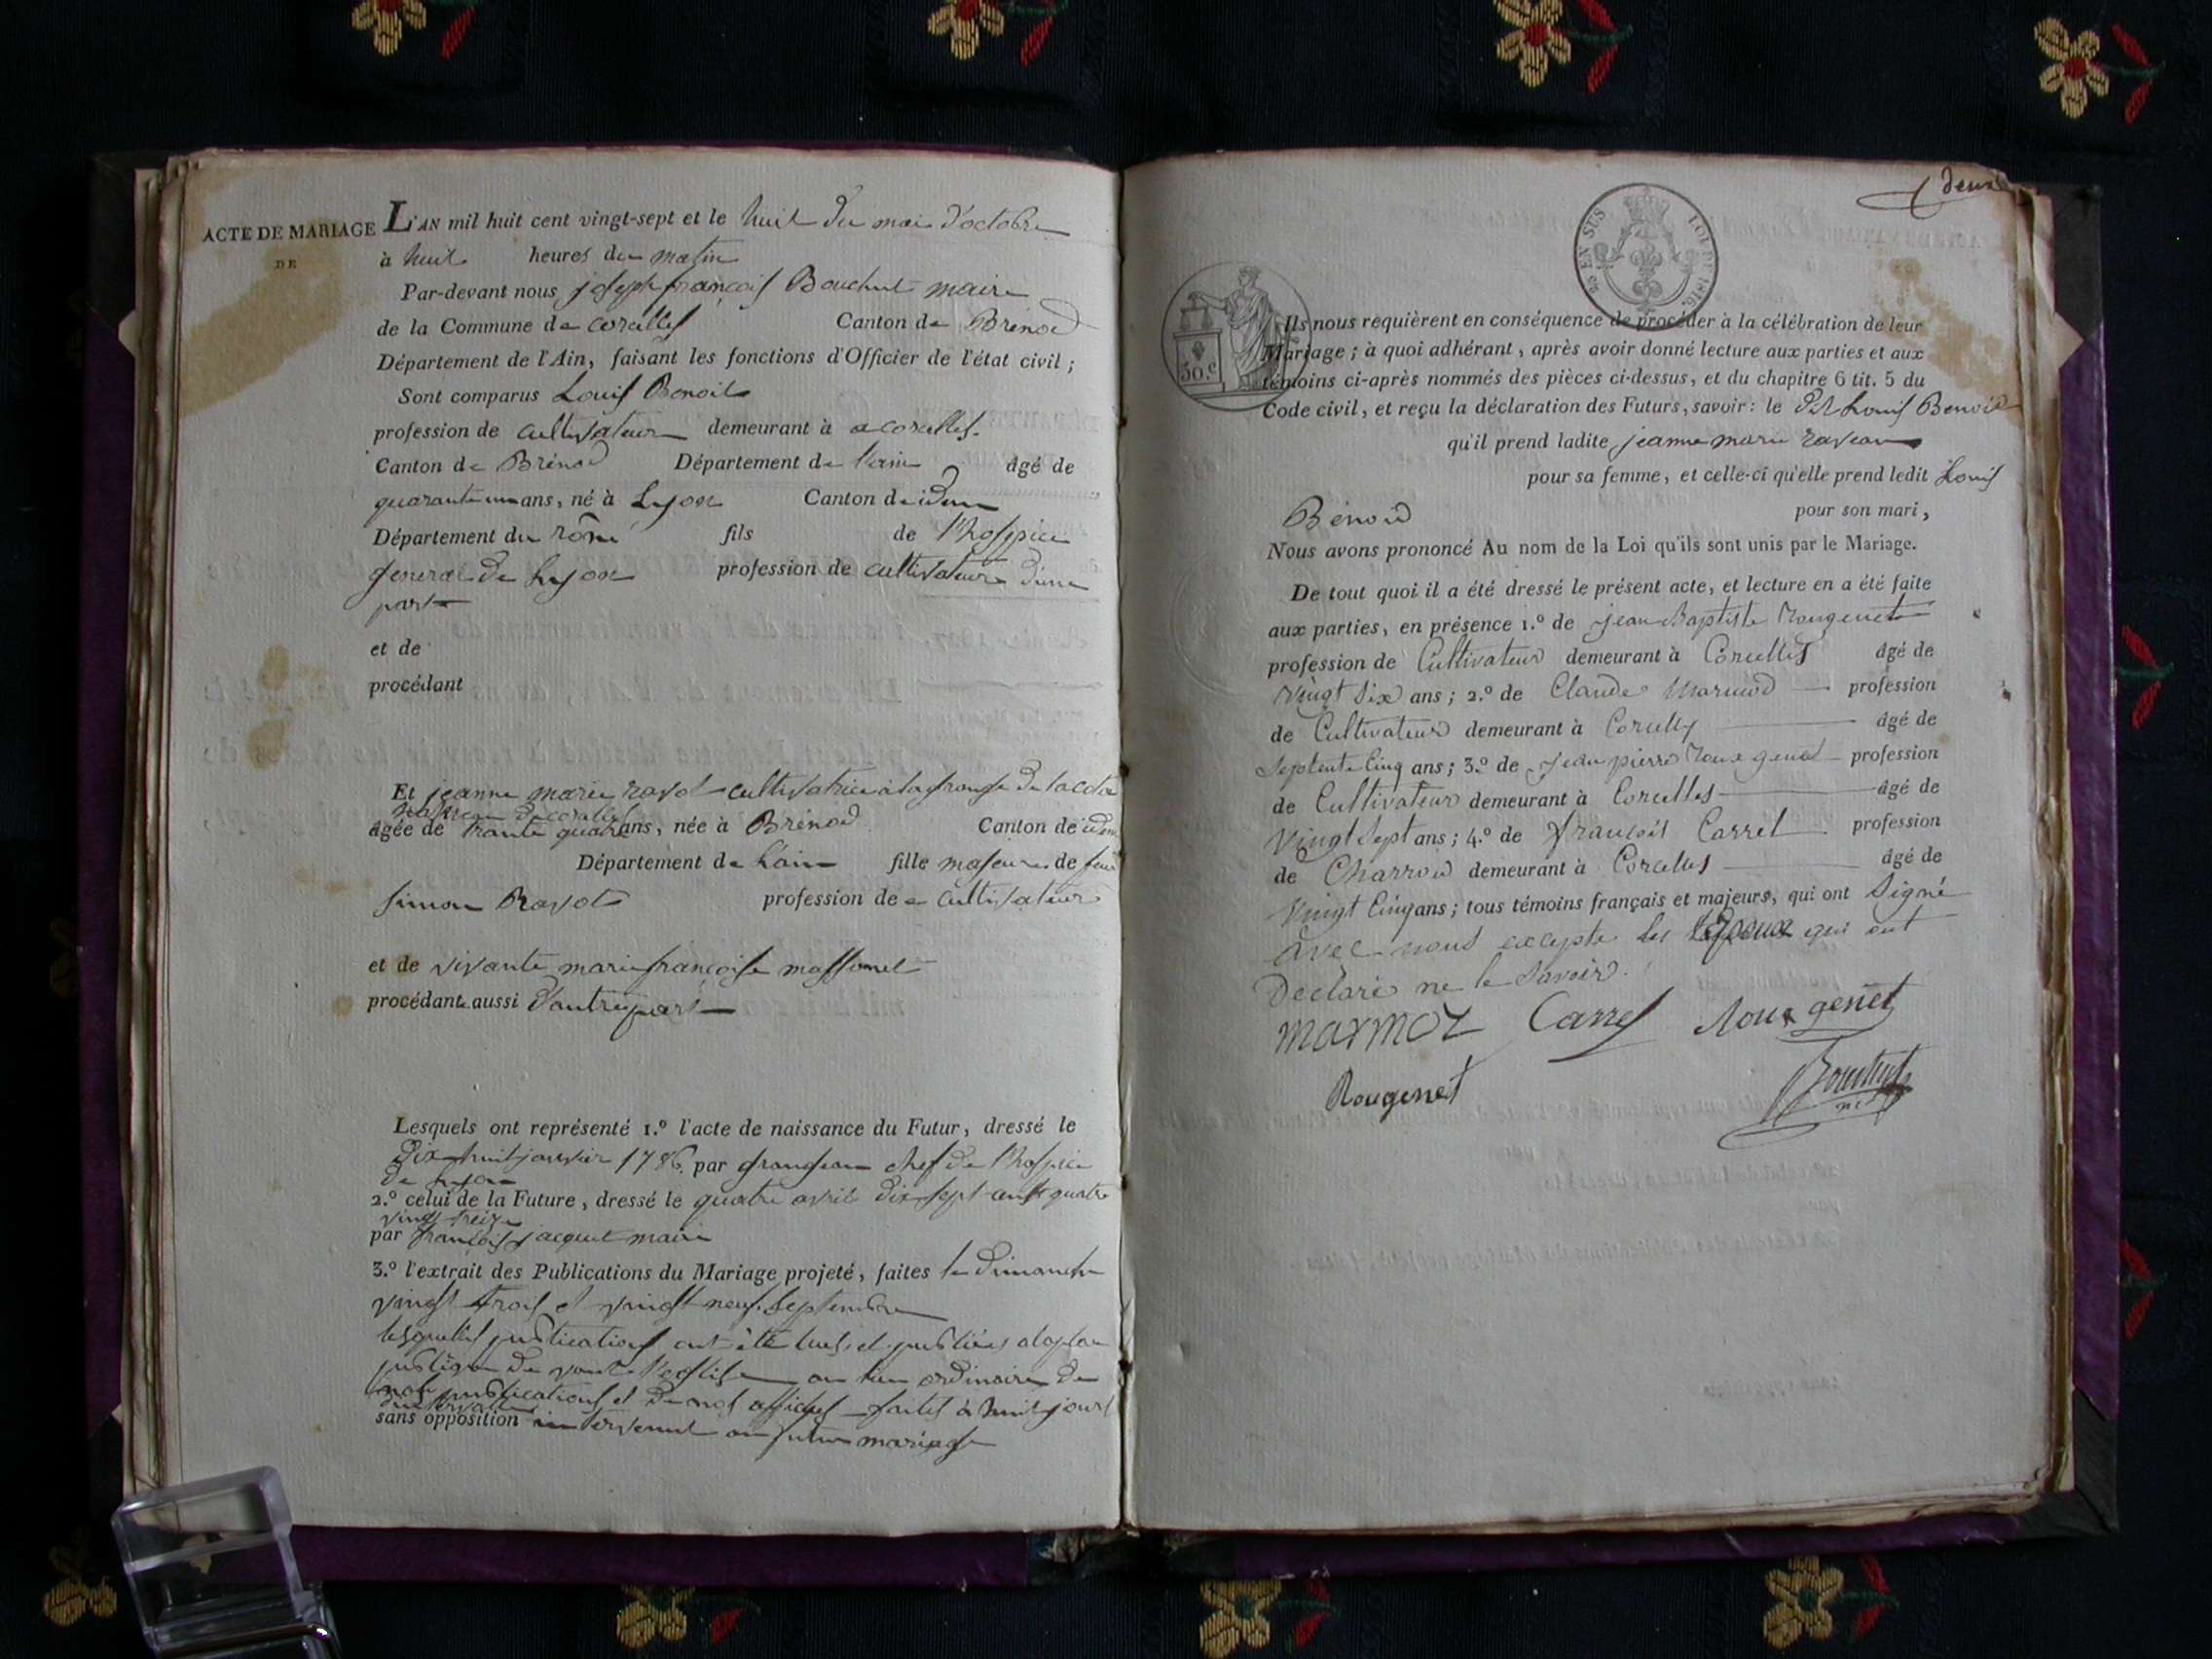 ACTE DE MARIAGE
DE
L'AN mil huit cent vingt-sept et le huit du moi d'octobre
à huit heures du matin
Par-devant nous joseph françois Bouchut maire
de la Commune de corcelles Canton de Brénod
Département de l'Ain, faisant les fonctions d'Officier de l'état civil ;
Sont comparus Louis Benoit
profession de cultivateur demeurant à a corcelles.
Canton de Brénod Département de l'ain âgé de
quarante un ans, né à Lyon Canton de idem
Département du rône fils de l'hospice
general de Lyon profession de cultivateur d'une
part
et de
procédant
Et jeanne marie ravot cultivatrice à la grange de la cota
âgée de trante quatre ans, née à Brénod Canton de idem
Département de L'ain fille majeure de feu
simon Ravot profession de cultivateur
et de vivante marie françoise massonet
procédante aussi d'autre part
Lesquels ont représenté 1.º l'acte de naissance du Futur, dressé le
dix huit janvier 1786. par grandjean chef de l'hospice
de Lyon
2.º celui de la Future, dressé le quatre avril dix sept cent quatre
vingt treize
par françois jacquet maire
3.º l'extrait des Publications du Mariage projeté, faites le dimanche
vingt trois et vingt neuf septembre
lesquelles publications ont été lues et publiées a la place
publique devant l'eglise au lieu ordinaire de
nos publications et de nos affiches faites à huit jours
d'intervalle
sans opposition intervenut au futur mariage
deux
EN SUS LOI DE 1816.
50.c
Ils nous requièrent en conséquence de procéder à la célébration de leur
Mariage ; à quoi adhérant, après avoir donné lecture aux parties et aux
témoins ci-après nommés des pièces ci-dessus, et du chapitre 6 tit. 5 du
Code civil, et reçu la déclaration des Futurs, savoir : le dit Louis Benoid
qu'il prend ladite jeanne marie ravau
pour sa femme, et celle-ci qu'elle prend ledit Louis
Benoid pour son mari,
Nous avons prononcé Au nom de la Loi qu'ils sont unis par le Mariage.
De tout quoi il a été dressé le présent acte, et lecture en a été faite
aux parties, en présence 1.º de jean Baptiste Rougenet
profession de Cultivateur demeurant à Corcelles âgé de
Vingt Six ans ; 2.º de Claude Marmod profession
de Cultivateur demeurant à Corcelly âgé de
Septente Cinq ans ; 3.º de jean pierre Rougenet profession
de Cultivateur demeurant à Corcelles âgé de
Vingt Sept ans ; 4.º de françois Carrel profession
de Charron demeurant à Corcelles âgé de
Vingt Cinq ans ; tous témoins français et majeurs, qui ont Signé
avec nous excepte les Epoux qui ont
Declaré ne le Savoir.
marmoz Carrel Rougenet
Rougenet Bouchut